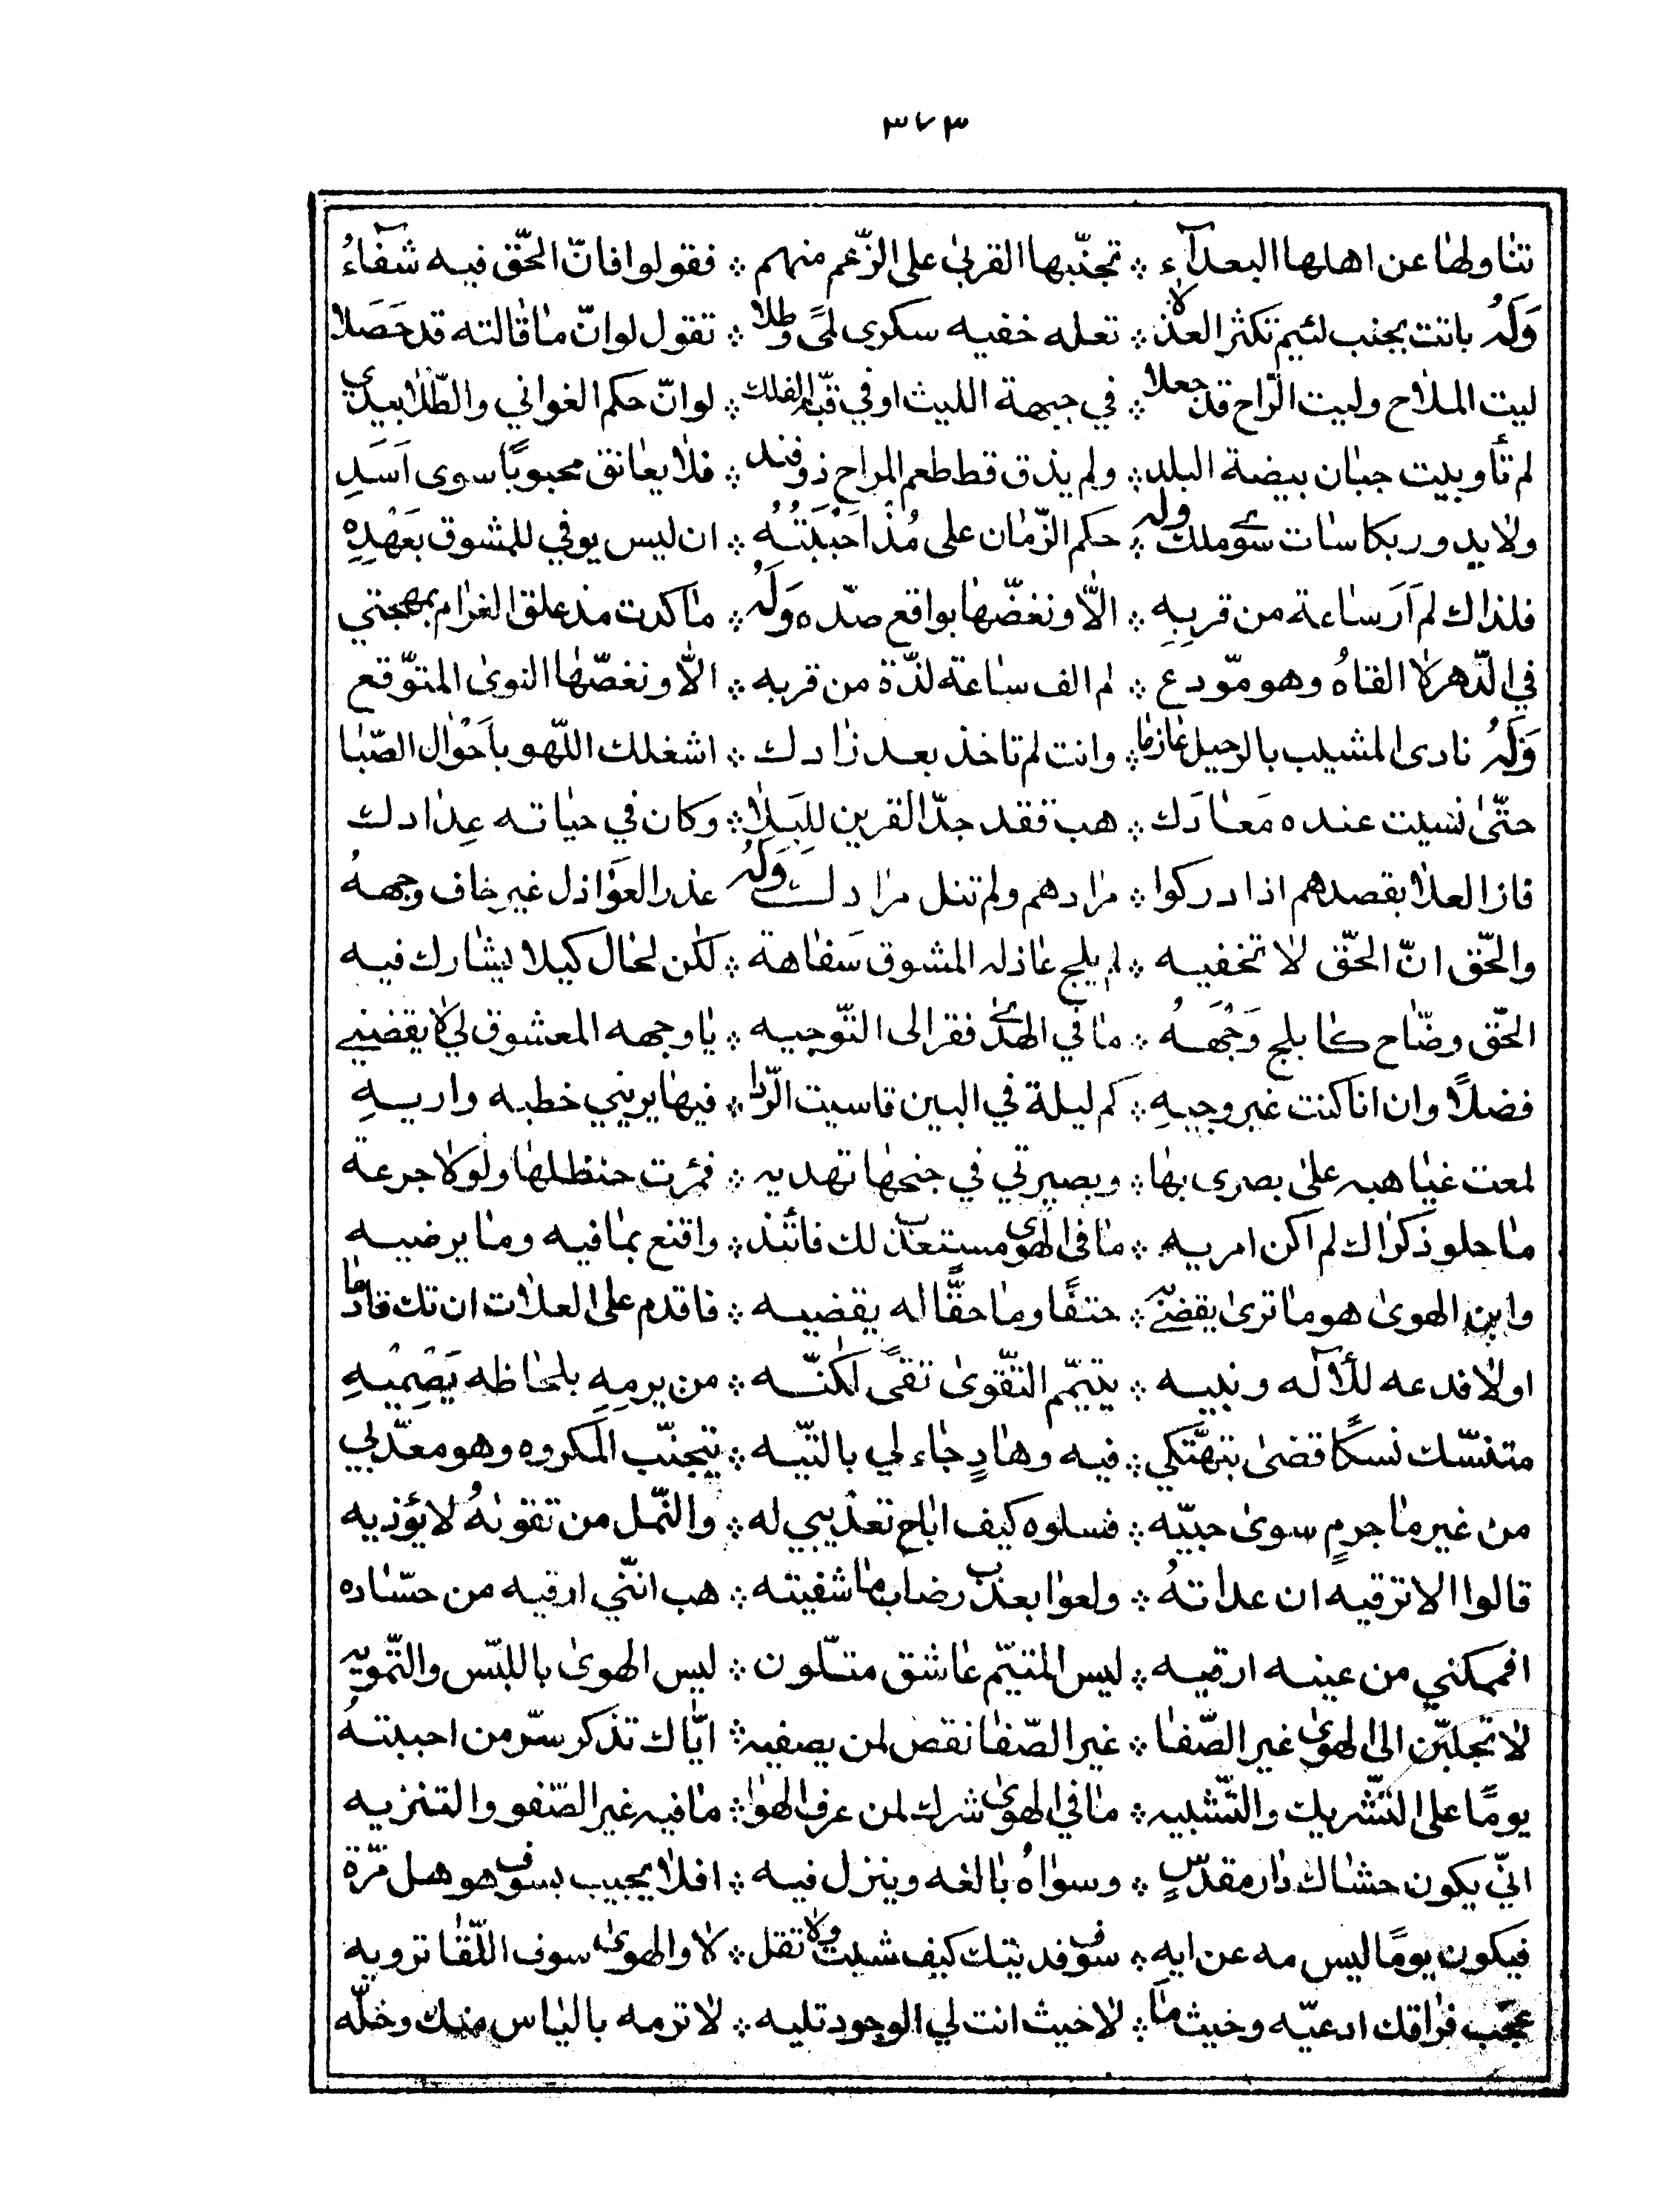 ٣٧٣
تناولها عن اهلها البعدآء ※ تجنّبها القربى على الزّعم منهم ※ فقولوا فانّ الحّق فيه شفاءُ
وَلَهُ باتت بجنب لئيم تكثر العذلا ※ تعله خفيه سكرى لمًى وطلا ※ تقول لو انّ ما قالته قد حَصَلا
ليت الملاح وليت الرّاح قد جعلا ※ في جبهة الليث او في قبّة الفلك ※ لو انّ حكم الغواني والطّلا بيدي
لم تأو بيت جبان بيضة البلد ※ ولم يذق قط طعم الراح ذو فند ※ فلا يعانق محبوبًا سوى اَسَدِ
ولا يدور بكاسات سوى ملك وله ※ حكم الزّمان على مُذ اَحْبَبْتُهُ ※ ان ليس يوفي للمشوق بعَهْدِهِ
فلذاك لم اَرَ ساعة من قربِهِ ※ الّا ونغصّها بواقع صدّه وَلَهُ ※ ما كدت مذ علق الغرام بمهجتي
في الدّهر لا القاهُ وهو مودّع ※ لم الف ساعة لذّة من قربه ※ الّا ونغصّها النوى المتوّقع
وَلَهُ نادى المشيب بالرحيل عازما ※ وانت لم تاخذ بعد زادك ※ اشغلك اللّهو باَحْوال الصّبا
حتّى نسيت عنده مَعادَك ※ هب فقد جدّ القرين للبَلا ※ وكان في حياته عِدادك
فاز العلا بقصدهم اذا دركوا ※ مرادهم ولم تنل مرادك وَلَهُ عذر العوَاذل غير خاف وجههُ
والحّق انّ الحّق لا تخفيه ※ لم يلج عاذله المشوق سَفاهة ※ لكن لحال كيلا يشارك فيه
الحّق وضّاح كابلج وَجْهَهُ ※ ما في الهدى فقر الى التّوجيه ※ يا وجهه المعشوق لي لا يقضيني
فضلًا وان انا كنت غير وجيهِ ※ كم ليلة في البين قاسيت الرّدا ※ فيها يريني خطبه واريهِ
لمعت غياهبه على بصرى بها ※ وبصيرتي في جنحها تهديه ※ فمُرت حنظلها ولولا جرعة
ما حلو ذكراك لم اكن امريه ※ ما فى الهوى مستعذب لك فاتئذ ※ واقنع بما فيه وما يرضيه
وابن الهوى هو ما ترى يقضي به ※ حتفًا وما حقًّا له يقضيه ※ فاقدم على العلات ان تك قادما
اولا فدعه لألآله ونبيه ※ يتيمّم التّقوى تقىً لكنّه ※ من يرمِهِ بلحاظه يَصِمْيهِ
متنسّك نسكًا قضى بتهتّكي ※ فيه وهادٍ جاء لي بالتّيه ※ يتجنّب المكروه وهو معذّبي
من غير ما جرمٍ سوى حبّيه ※ فسلوه كيف اباح تعذيبي له ※ والنّمل من تقونهُ لا يؤذيه
قالوا الا ترقيه ان عداتهُ ※ ولعوا بعذب رضاب ما شفيته ※ هب انّني ارقيه من حسّاده
افممكني من عينه ارقيه ※ ليس المتيّم عاشق متلّون ※ ليس الهوى باللبّس والتّمويه
لا تجلبّن الى الهوى غير الصّفا ※ غير الصّفا نقص لمن يصفيه ※ ايّاك تذكر سرّ من احببتهُ
يومًا على التّشريك والتّشبيه ※ ما في الهوى شرك لمن عرف الهوا ※ ما فيه غير الصّفو والتنزيه
انّي يكون حشاك دار مقدّسٍ ※ وسواهُ بالغه وينزل فيه ※ افلا يجيب بسوف هو هل مرّة
فيكون يومًا ليس مه عن ايه ※ سوف فديتك كيف شيت ولا تقل ※ لا والهوى سوف اللّقا ترويه
عجّب فراقك ادعيّه وخيث ما ※ لا خيث انت لي الوجود تليه ※ لا ترمه بالياس منك وخلّه